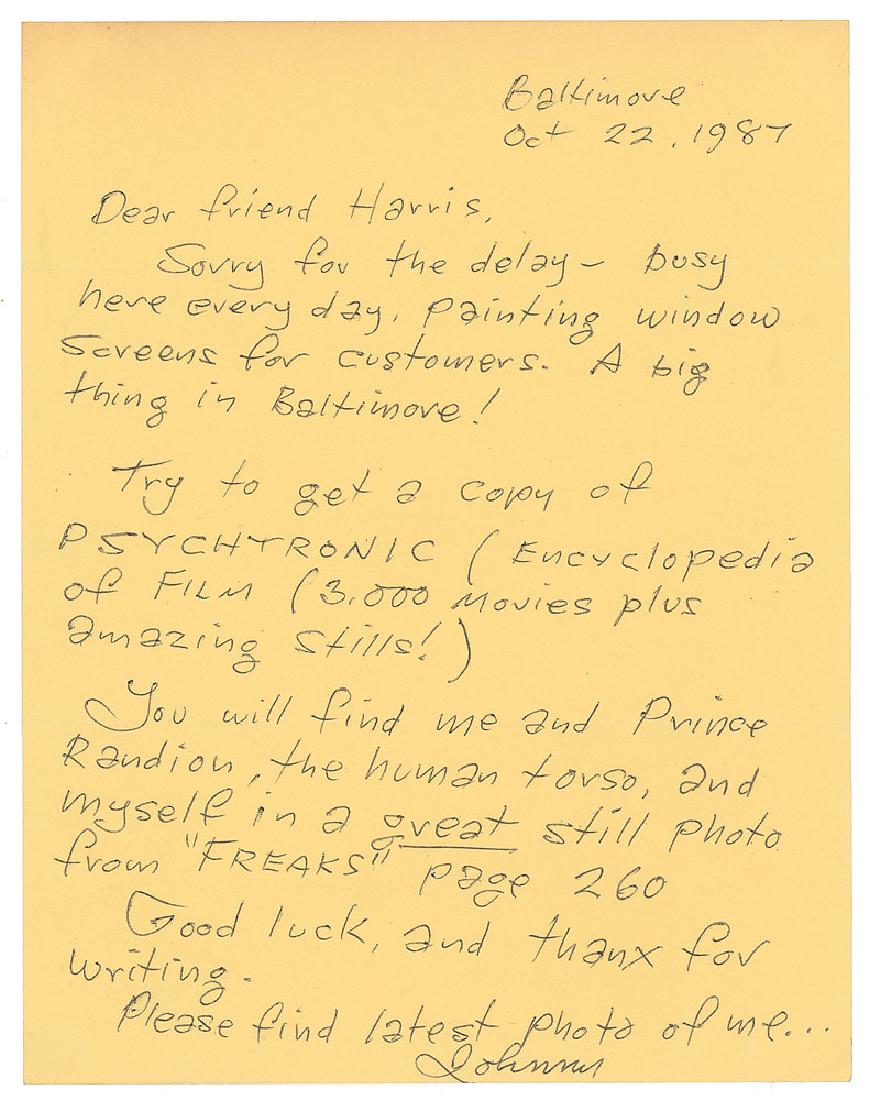 Baltimore
Oct 22, 1987
Dear friend Harris,
Sorry for the delay – busy
here every day, painting window
screens for customers. A big
thing in Baltimore!
Try to get a copy of
PSYCHTRONIC (Encyclopedia
of FILM (3,000 Movies plus
amazing stills!)
You will find me and Prince
Randion, the human torso, and
myself in a great still photo
from "FREAKS" page 260
Good luck, and thanx for
writing.
Please find latest photo of me...
Johnny